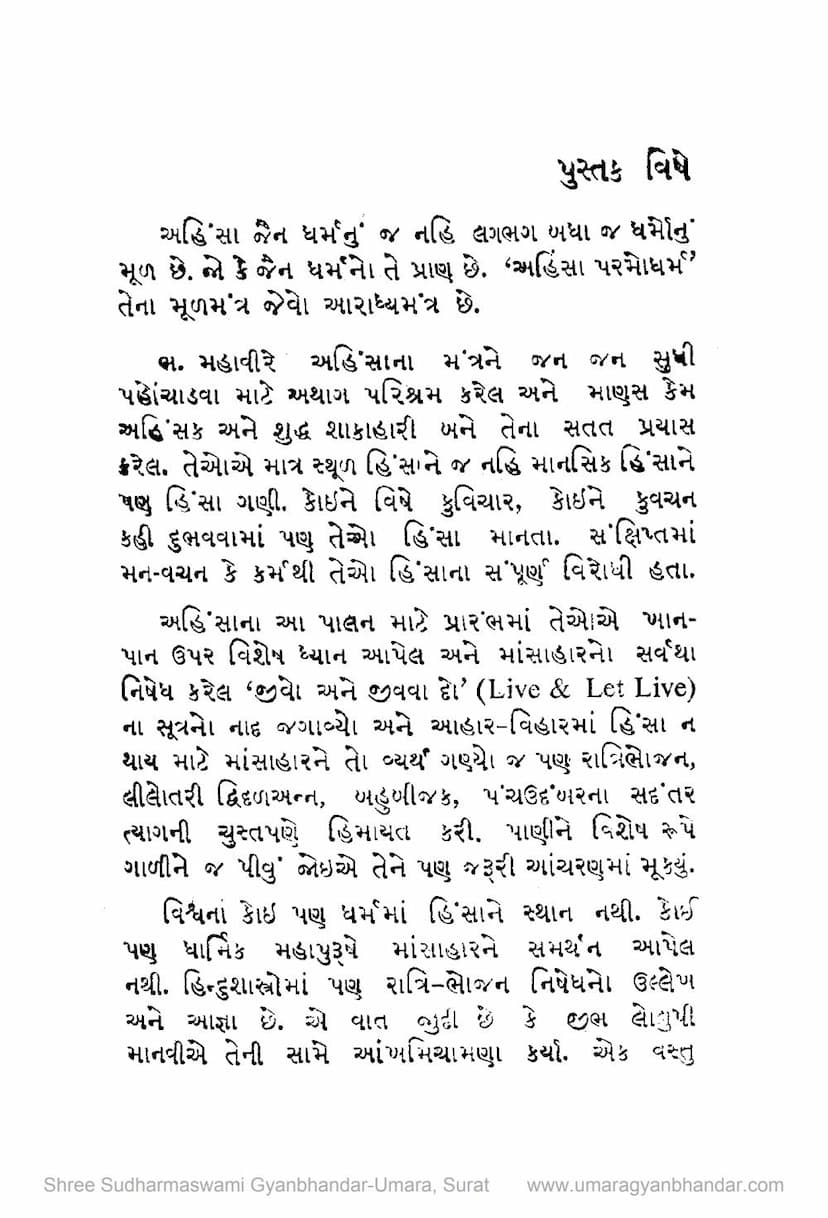 પુસ્તક વિષે
અહિંસા જૈન ધર્મનું જ નહિ લગભગ બધા જ ધર્મોનું
મૂળ છે. જો કે જૈન ધર્મનો તે પ્રાણ છે. ‘અહિંસા પરમોધર્મ’
તેના મૂળમંત્ર જેવો આરાધ્યમંત્ર છે.
ભ. મહાવીરે અહિંસાના મંત્રને જન જન સુધી
પહોંચાડવા માટે અથાગ પરિશ્રમ કરેલ અને માણુસ કેમ
અહિંસક અને શુદ્ધ શાકાહારી બને તેના સતત પ્રયાસ
કરેલ. તેઓએ માત્ર સ્થૂળ હિંસાને જ નહિ માનસિક હિંસાને
પણુ હિંસા ગણી. કોઇને વિષે કુવિચાર, કોઇને કુવચન
કહી દુભવવામાં પણુ તેઓ હિંસા માનતા. સંક્ષિપ્તમાં
મન-વચન કે કર્મથી તેઓ હિંસાના સંપૂર્ણ વિરોધી હતા.
અહિંસાના આ પાલન માટે પ્રારંભમાં તેઓએ ખાન-
પાન ઉપર વિશેષ ધ્યાન આપેલ અને માંસાહારનો સર્વથા
નિષેધ કરેલ ‘જીવો અને જીવવા દો’ (Live & Let Live)
ના સૂત્રનો નાદ જગાવ્યો અને આહાર-વિહારમાં હિંસા ન
થાય માટે માંસાહારને તો વ્યર્થ ગણ્યો જ પણ રાત્રિભોજન,
લીલોતરી દ્વિદળઅન્ન, બહુબીજક, પંચઉદંબરના સદંતર
ત્યાગની ચુસ્તપણે હિમાયત કરી. પાણીને વિશેષ રૂપે
ગાળીને જ પીવું જોઇએ તેને પણ જરૂરી આંચરણમાં મૂકયું.
વિશ્વનાં કોઇ પણ ધર્મમાં હિંસાને સ્થાન નથી. કોઈ
પણ ધાર્મિક મહાપુરૂષે માંસાહારને સમર્થન આપેલ
નથી. હિન્દુશાસ્ત્રોમાં પણ રાત્રિ-ભોજન નિષેધનો ઉલ્લેખ
અને આજ્ઞા છે. એ વાત જુદી છે કે જીભ લોલુપી
માનવીએ તેની સામે આંખમિચામણા કર્યા. એક વસ્તુ
Shree Sudharmaswami Gyanbhandar-Umara, Surat www.umaragyanbhandar.com